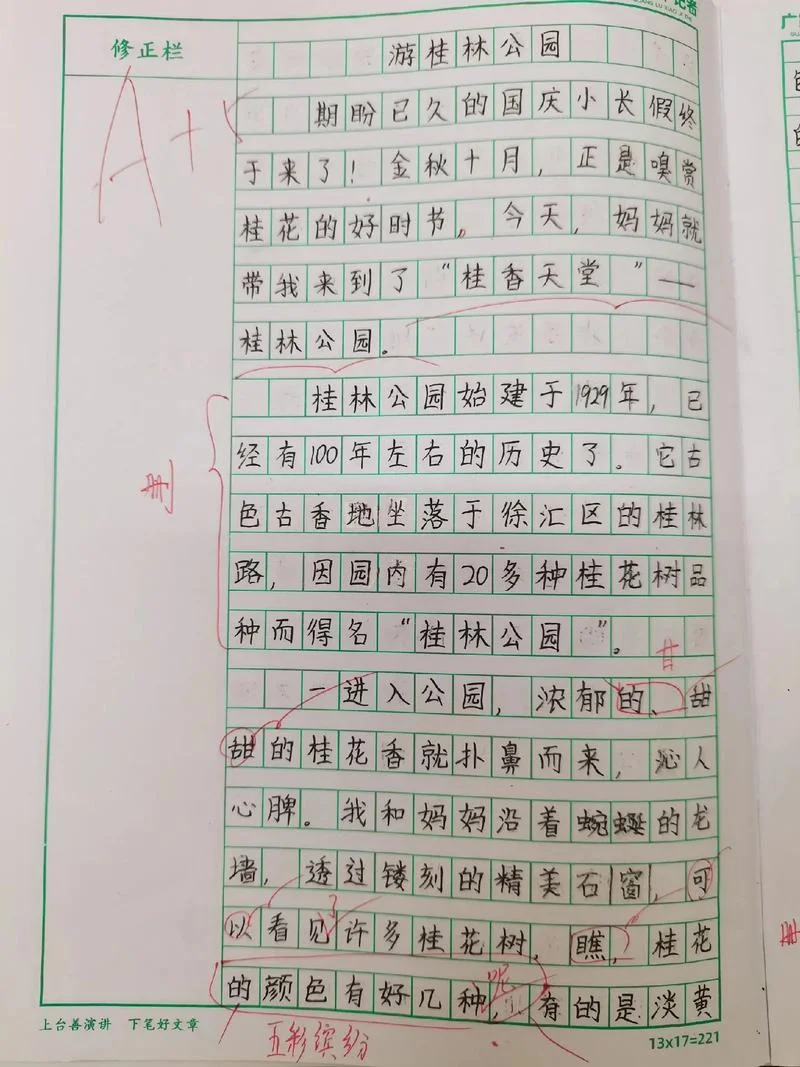 记者
GUANG LU XIAO JI ZHE
广
修正栏
游桂林公园
A+
期盼已久的国庆小长假终
于来了！金秋十月，正是嗅赏
桂花的好时节。今天，妈妈就
带我来到了“桂香天堂”——
桂林公园。
桂林公园始建于1929年，已
经有100年左右的历史了。它古
删
色古香地坐落于徐汇区的桂林
路，因园内有20多种桂花树品
种而得名“桂林公园”。
甘
一进入公园，浓郁的、甜
甜的桂花香就扑鼻而来，沁人
心脾。我和妈妈沿着蜿蜒的龙
墙，透过镂刻的精美石窗，可
了
以看见许多桂花树。瞧，桂花
呢
的颜色有好几种，有的是淡黄
五彩缤纷
上台善演讲 下笔好文章
13x17=221